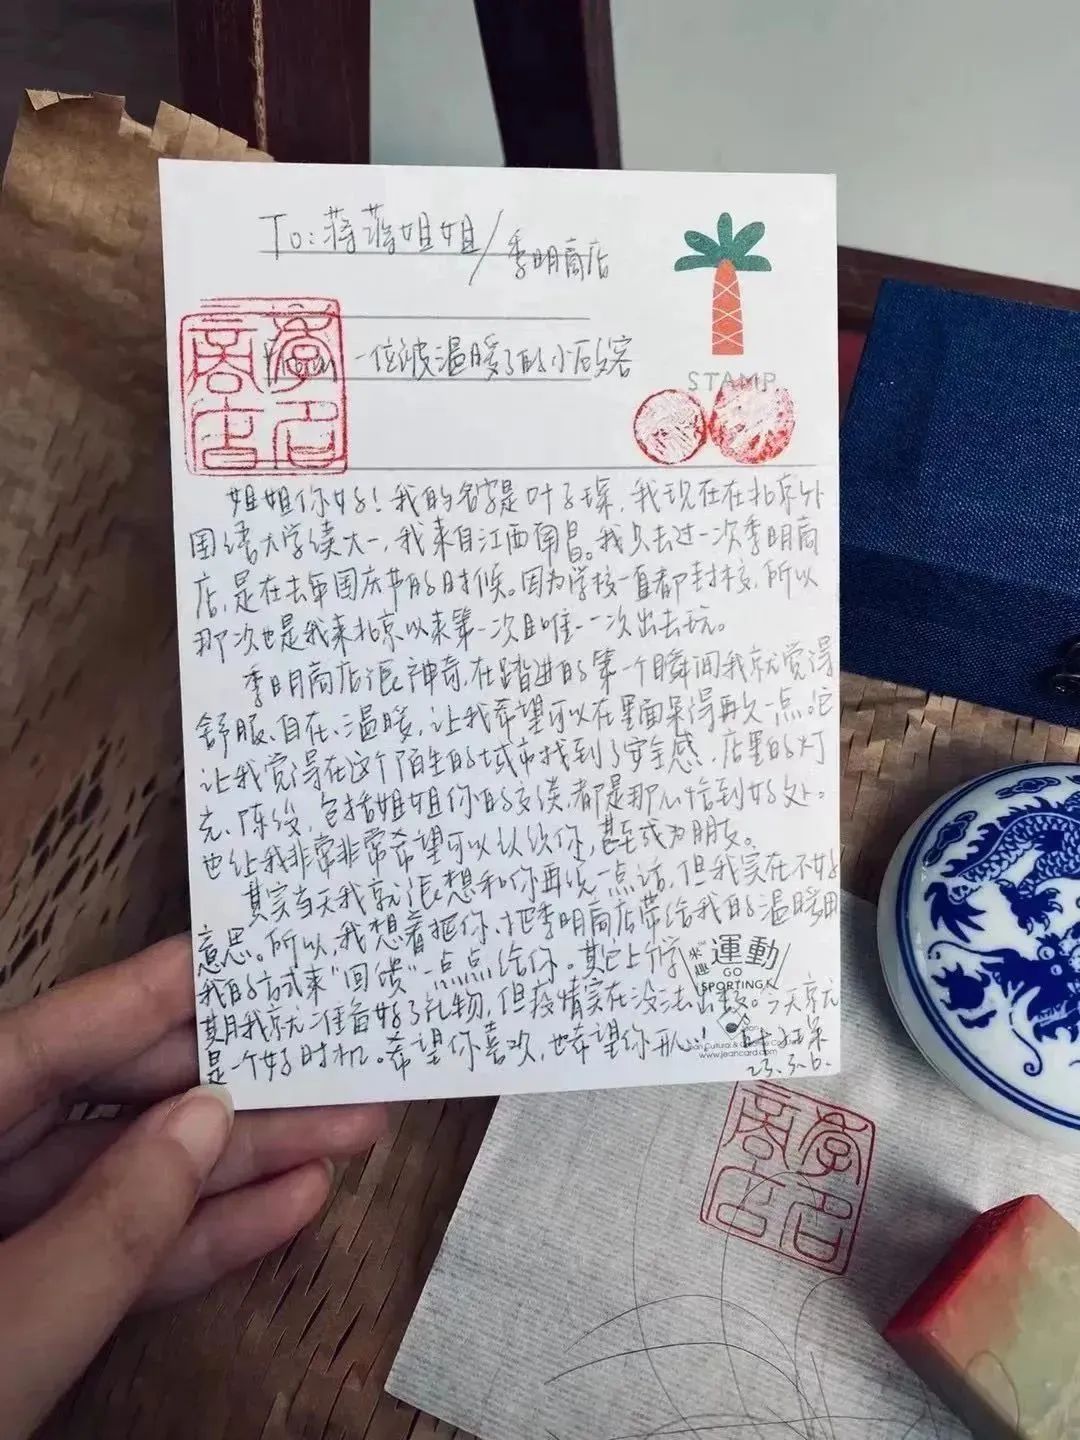 To: 蒋蒋姐姐/季明商店
一位被温暖了的小顾客
STAMP
姐姐你好！我的名字是叶子琛，我现在在北京外
国语大学读大一，我来自江西南昌。我只去过一次季明商
店，是在去年国庆节的时候。因为学校一直都封校，所以
那次也是我来北京以来第一次且唯一一次出去玩。
季明商店很神奇，在踏进的第一个瞬间我就觉得
舒服、自在、温暖，让我希望可以在里面呆得再久一点。它
让我觉得在这个陌生的城市找到了安全感，店里的灯
光、陈设，包括姐姐你的交谈，都是那么恰到好处。
也让我非常非常希望可以认识你，甚至成为朋友。
其实当天我就很想和你再说一点话，但我实在不好
意思。所以，我想着把你、把季明商店带给我的温暖用
我的方式来“回馈”一点点给你。其实上学
期我就准备好了礼物，但疫情实在没法出校。今天就
是一个好时机。希望你喜欢，也希望你开心！
23.3.6.
來趣
運動
GO
SPORTING
www.jeancard.com